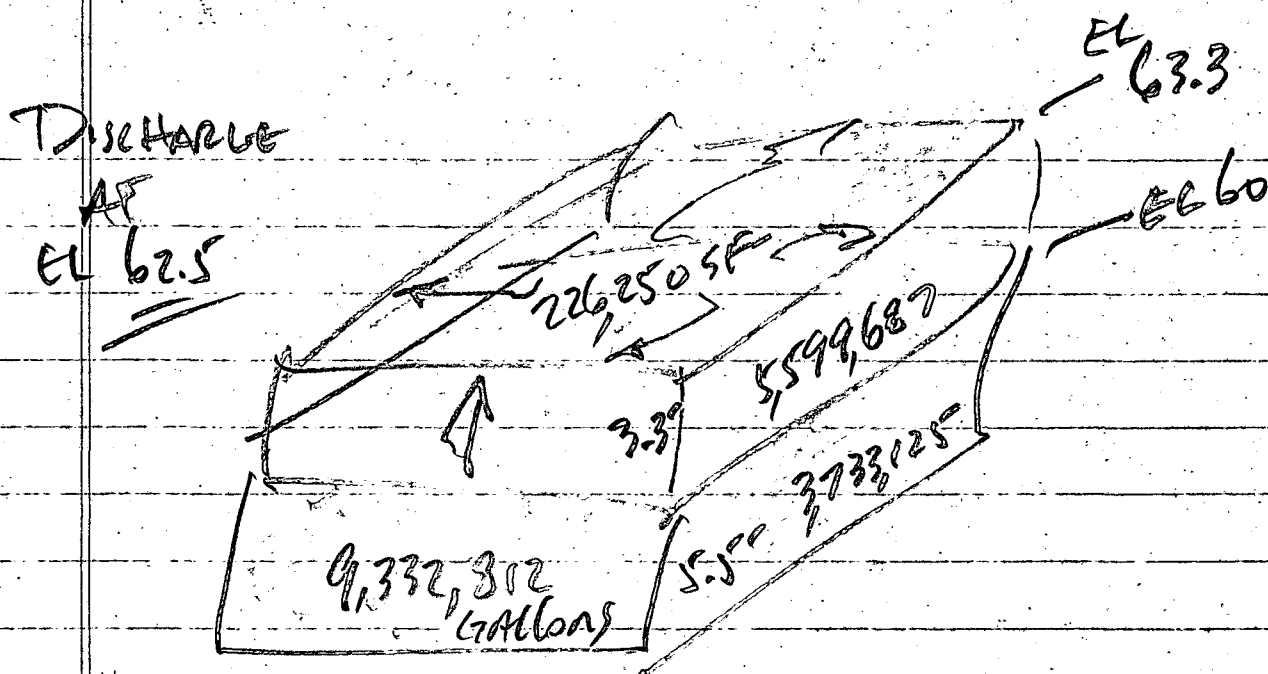 EL
63.3
DISCHARGE
AT
EL 62.5
EL 60
226,250 SF
5,599,687
3.3'
3,733,125
5.5'
9,332,812
GALLONS